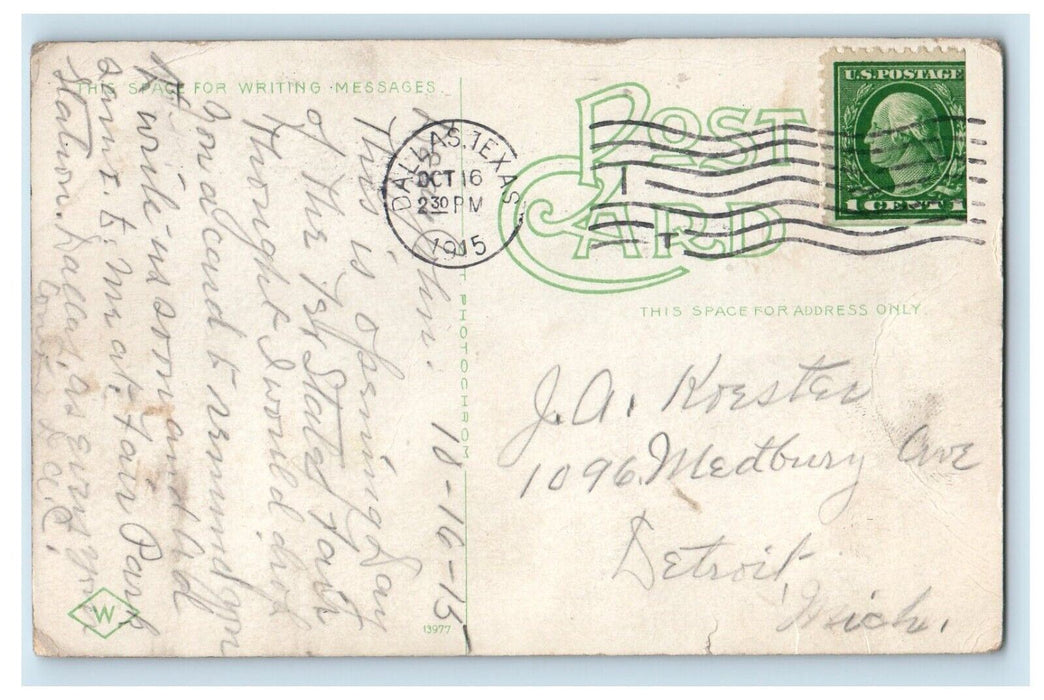 THIS SPACE FOR WRITING MESSAGES
POST CARD
THIS SPACE FOR ADDRESS ONLY.
U.S. POSTAGE
1 CENT 1
DALLAS, TEXAS
OCT 16
2 30 PM
1915
PHOTOCHROM
13977
W
10-16-15
This is opening day
of the Ist State Fair
thought I would drop
you a card to remind you
to write us som and
same to me at Fair Park
Station. Dallas, as ever yours
J. A. Koester
1096 Medbury Ave
Detroit,
Mich.